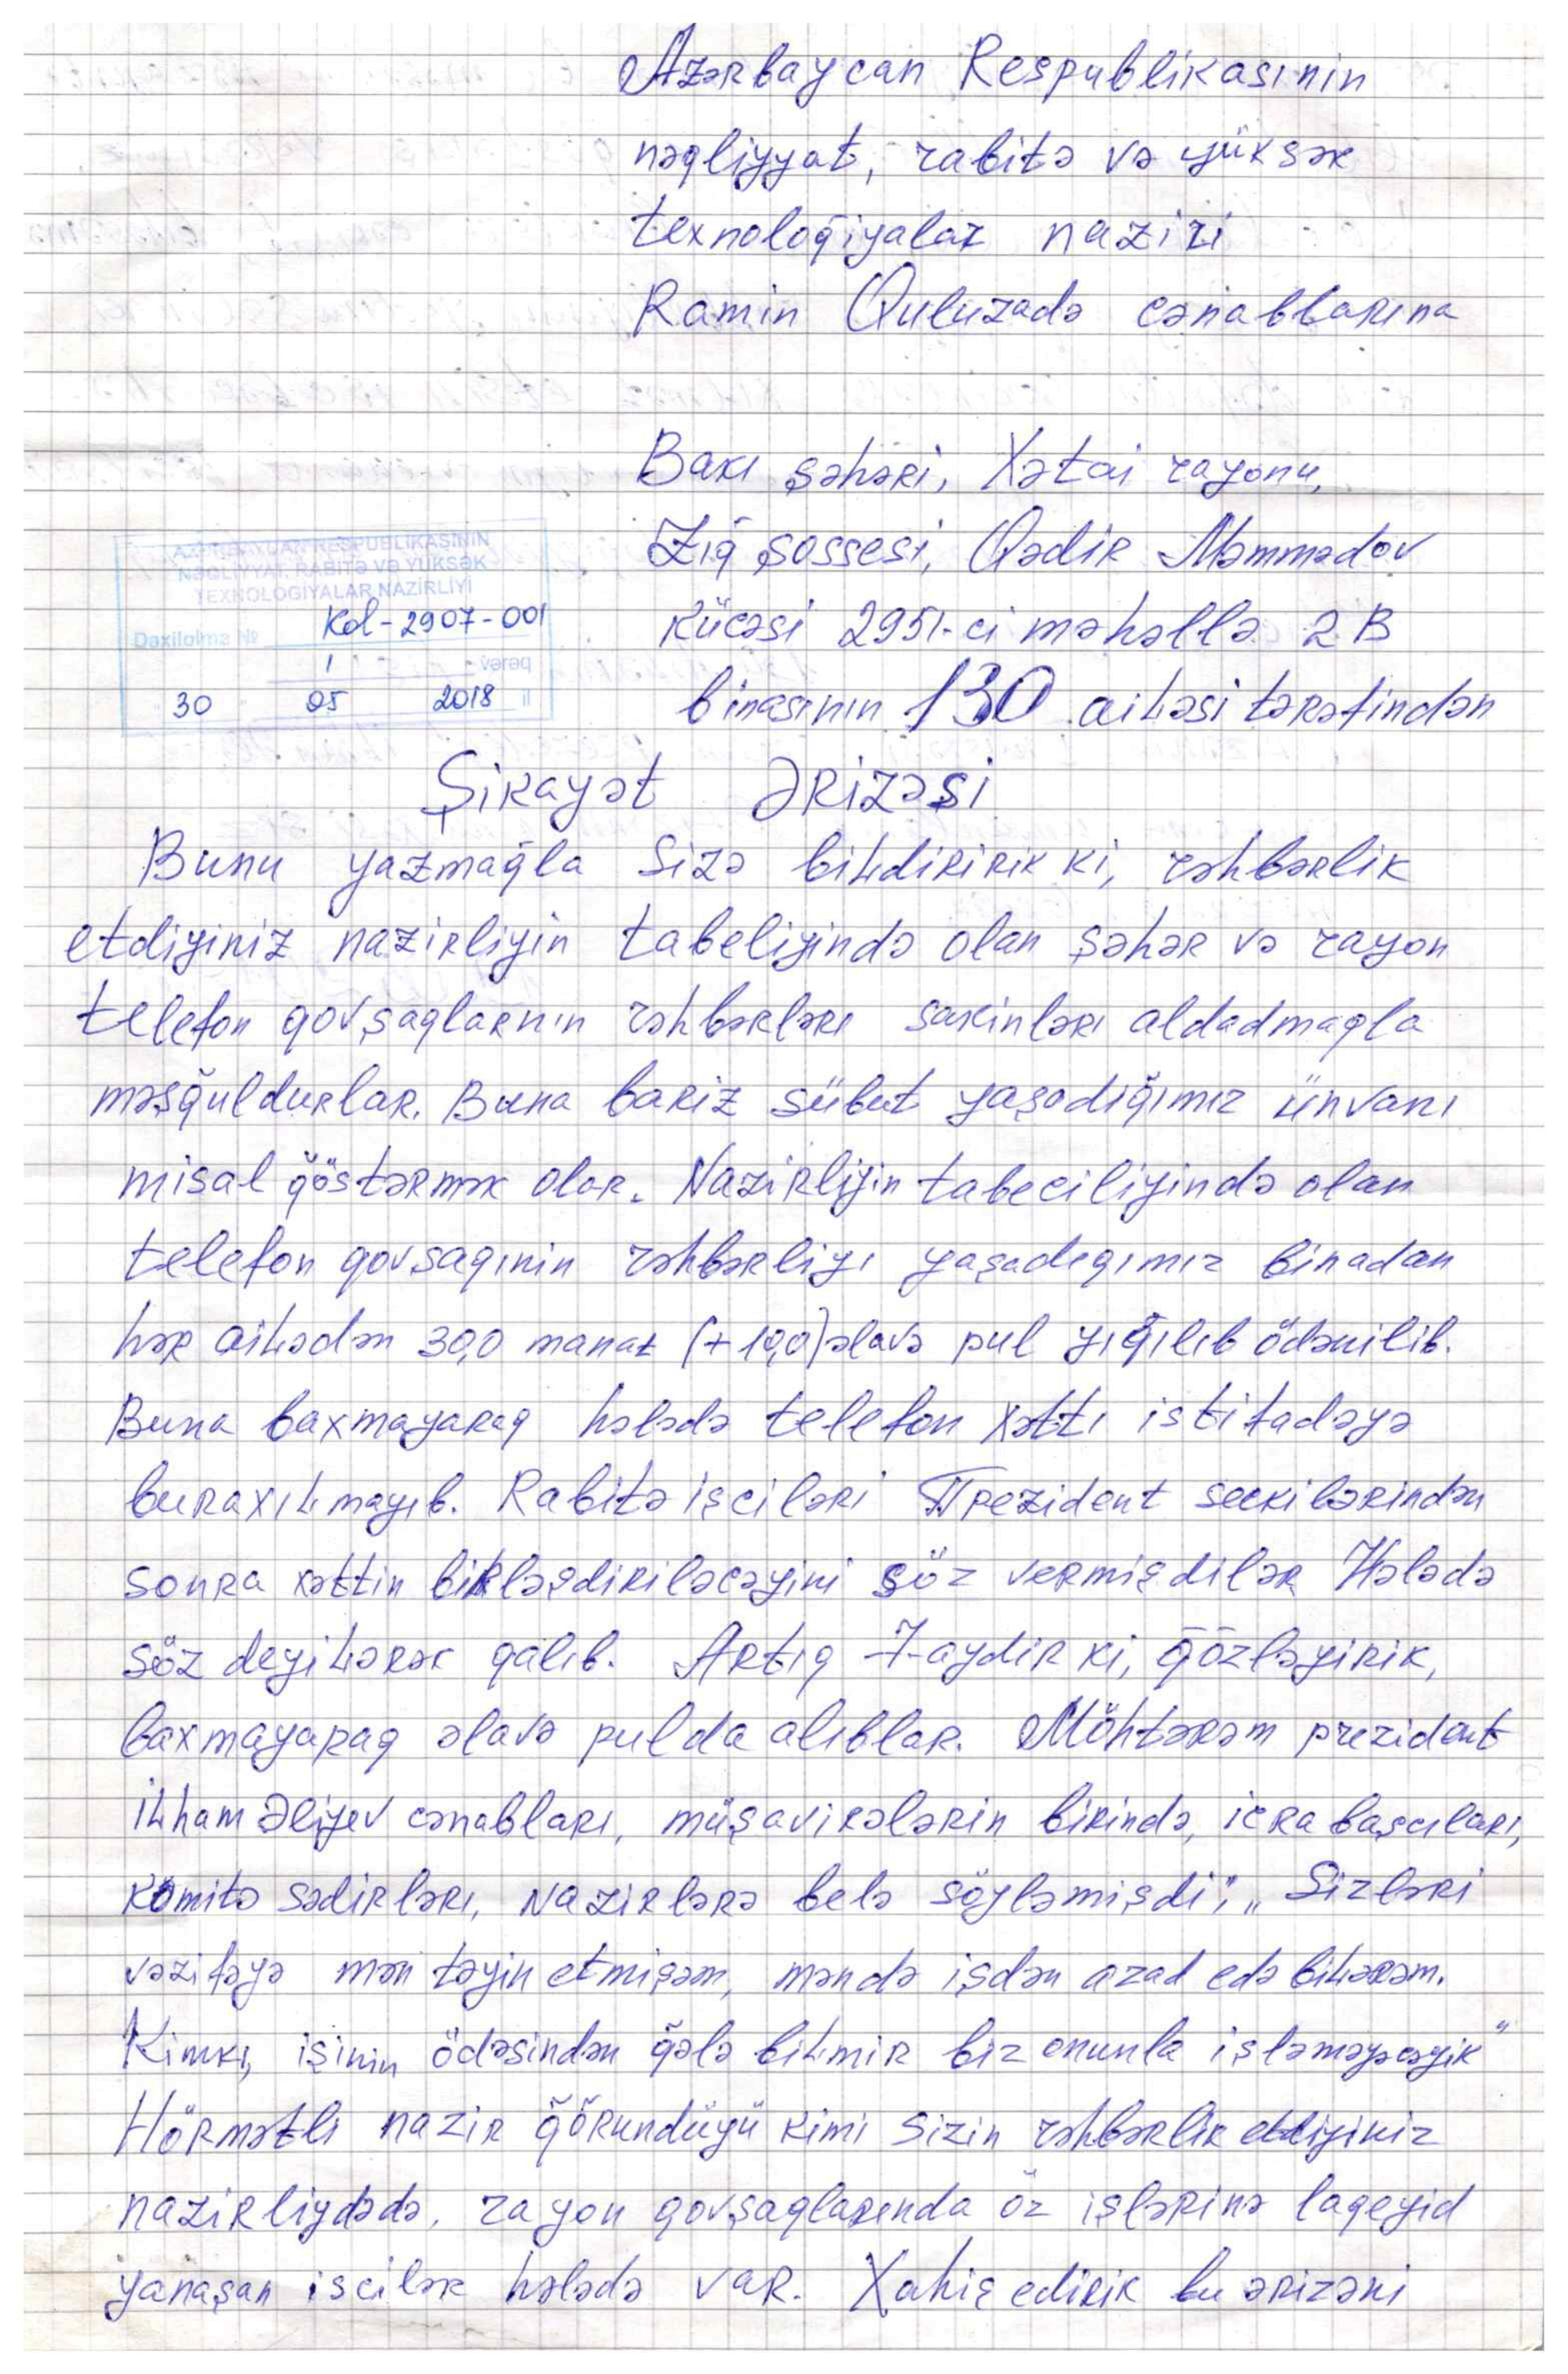 Azərbaycan Respublikasının
nəqliyyat, rabitə və yüksək
texnoloğiyalar naziri
Ramin Quluzadə cənablarına
Bakı şəhəri, Xətai rayonu,
Zığ şossesi, Qədir Məmmədov
küçəsi 2951-ci məhəllə 2B
binasının 130 ailəsi tərəfindən
AZƏRBAYCAN RESPUBLİKASININ
NƏQLİYYAT, RABİTƏ VƏ YÜKSƏK
TEXNOLOGİYALAR NAZİRLİYİ
Daxilolma № Kol-2907-001
1 vərəq
30 05 2018 il
Şikayət Ərizəsi
Bunu yazmağla Sizə bildiririk ki, rəhbərlik
etdiyiniz nazirliyin tabeliyində olan şəhər və rayon
telefon qovşaqlarnın rəhbərlərı sakinlərı aldadmaqla
məşğuldurlar. Buna bariz sübut yaşadığımız ünvanı
misal göstərmək olar. Nazirliyin tabeciliyində olan
telefon qovşaqının rəhbərliyı yaşadıqımız binadan
hər ailədən 30,0 manat (+10,0) əlavə pul yığılıb ödənilib.
Buna baxmayaraq hələdə telefon xəttı istifadəyə
buraxılmayıb. Rabitə işciləri Prezident seckilərindən
sonra xəttin birləşdiriləcəyini söz vermişdilər Hələdə
söz deyilərək qalıb. Artıq 7-aydir ki, gözləyirik,
baxmayaraq əlavə pulda alıblar. Möhtərəm prezident
İlham Əliyev cənabları, müşavirələrin birində, icra başcıları,
komitə sədirlərı, nazirlərə belə söyləmişdi: „Sizləri
vəzifəyə mən təyin etmişəm, məndə işdən azad edə bilərəm.
Kimki, işinin ödəsindən gələ bilmir biz onunla işləməyəcəyik"
Hörmətlı nazir görundüyü kimi Sizin rəhbərlik etdiyiniz
nazirliydədə, rayon qovşaqlarında öz işlərinə laqeyid
yanaşan iscilər hələdə var. Xahiş edirik bu ərizəni